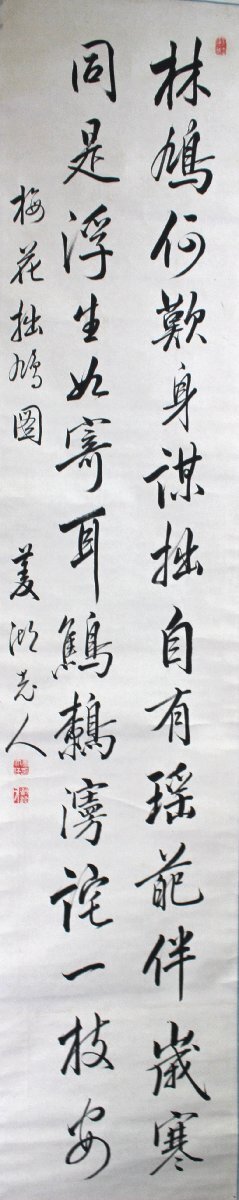 林鳩何歎身謀拙自有瑶葩伴歲寒
同是浮生如寄耳鷦鷯漫詫一枝安
梅花拙鳩圖　菱湖老人